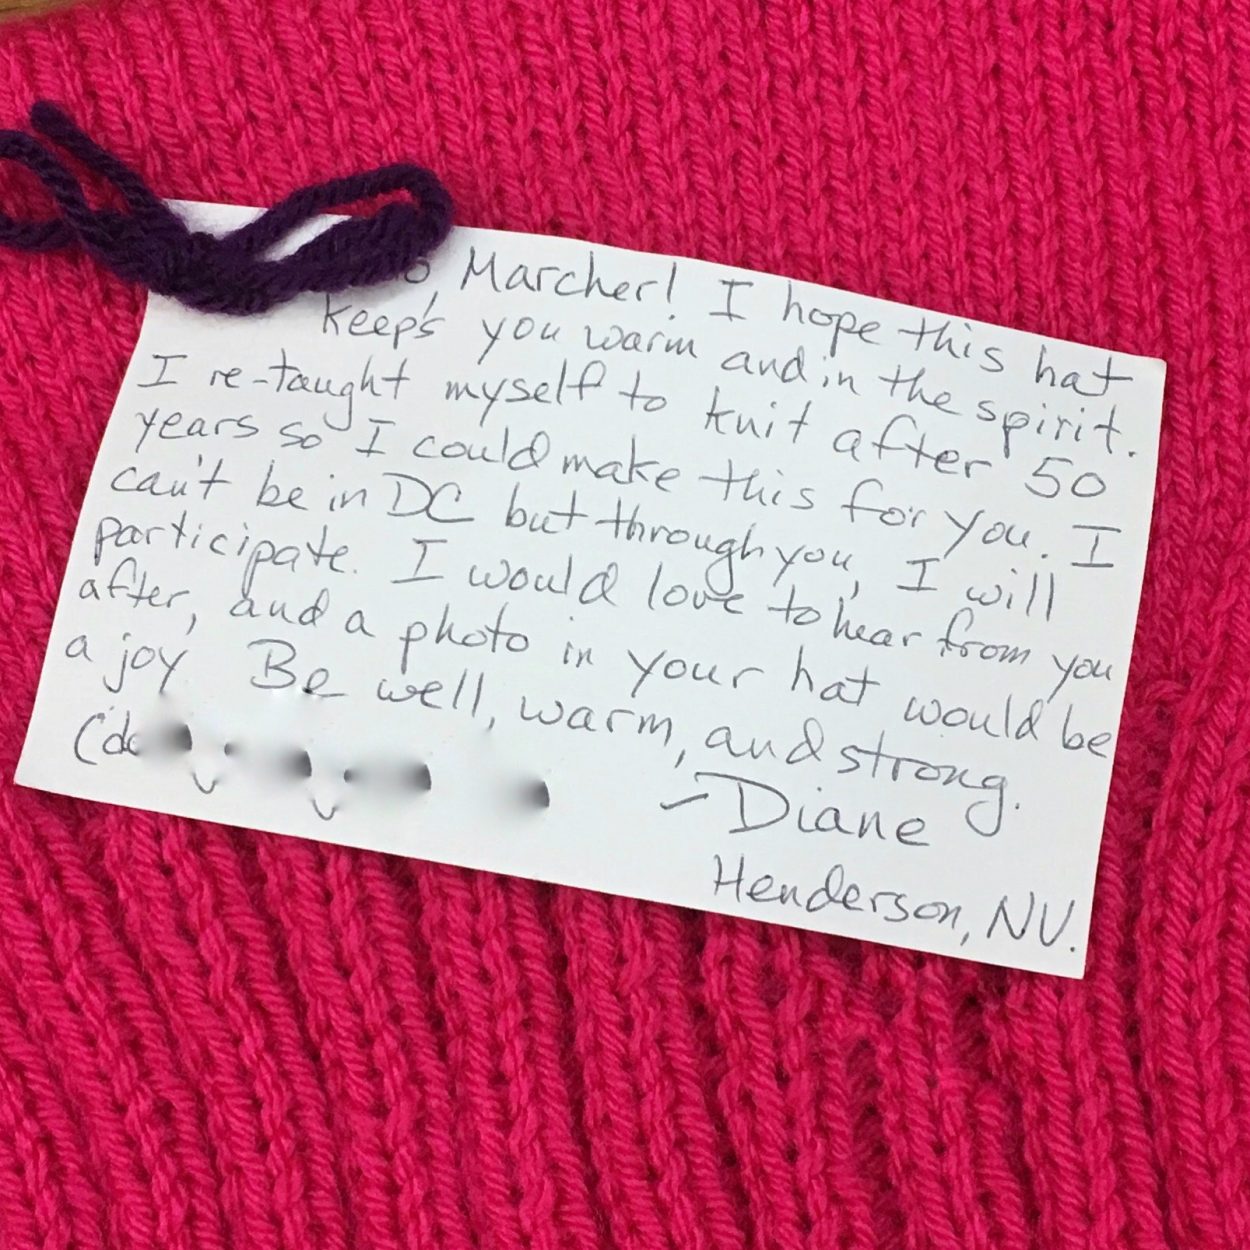 o, Marcher! I hope this hat
keep's you warm and in the spirit.
I re-taught myself to knit after 50
years so I could make this for you. I
can't be in DC but through you, I will
participate. I would love to hear from you
after, and a photo in your hat would be
a joy Be well, warm, and strong.
- Diane
Henderson, NV.